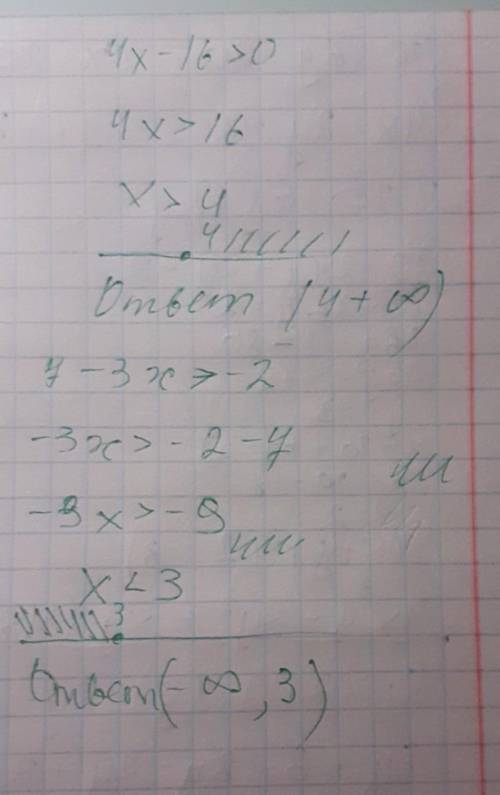 4x-16>0
4x>16
x>4
4
Ответ (4+∞)
7-3x>-2
-3x>-2-7
-3x>-9
x<3
3
Ответ(-∞,3)